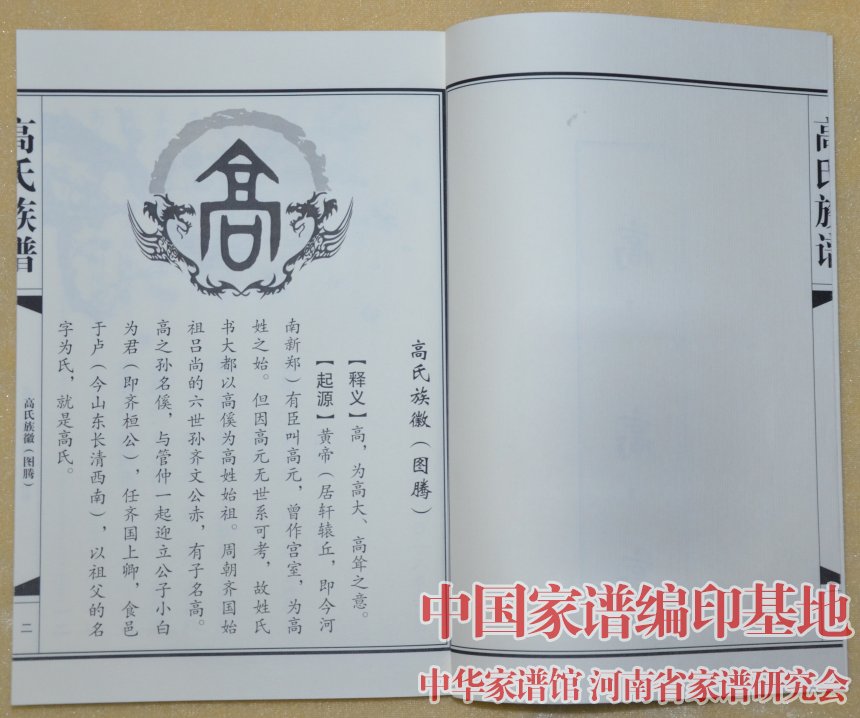 高氏族谱
高氏族徽（图腾）
二
高
高氏族徽（图腾）
【释义】高，为高大、高耸之意。
【起源】黄帝（居轩辕丘，即今河
南新郑）有臣叫高元，曾作宫室，为高
姓之始。但因高元无世系可考，故姓氏
书大都以高傒为高姓始祖。周朝齐国始
祖吕尚的六世孙齐文公赤，有子名高。
高之孙名傒，与管仲一起迎立公子小白
为君（即齐桓公），任齐国上卿，食邑
于卢（今山东长清西南），以祖父的名
字为氏，就是高氏。
高氏族谱
中国家谱编印基地
中华家谱馆 河南省家谱研究会